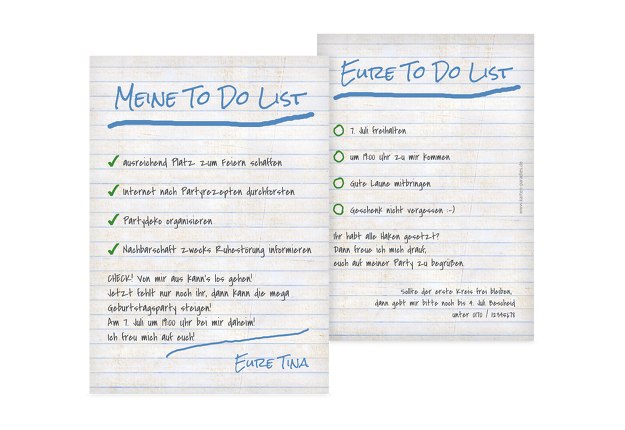 MEINE TO DO LIST
ausreichend Platz zum Feiern schaffen
Internet nach Partyrezepten durchforsten
Partydeko organisieren
Nachbarschaft zwecks Ruhestörung informieren
CHECK! Von mir aus kann's los gehen!
Jetzt fehlt nur noch ihr, dann kann die mega
Geburtstagsparty steigen!
Am 7. Juli um 19:00 uhr bei mir daheim!
Ich freu mich auf euch!
EURE TINA
EURE TO DO LIST
7. Juli freihalten
um 19:00 uhr zu mir kommen
Gute Laune mitbringen
Geschenk nicht vergessen :-)
Ihr habt alle Haken gesetzt?
Dann freue ich mich drauf,
euch auf meiner Party zu begrüßen.
Sollte der erste Kreis frei bleiben,
dann gebt mir bitte noch bis 4. Juli Bescheid
unter 0170 / 12345678